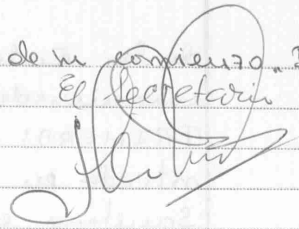 de su comienzo.
El Secretario